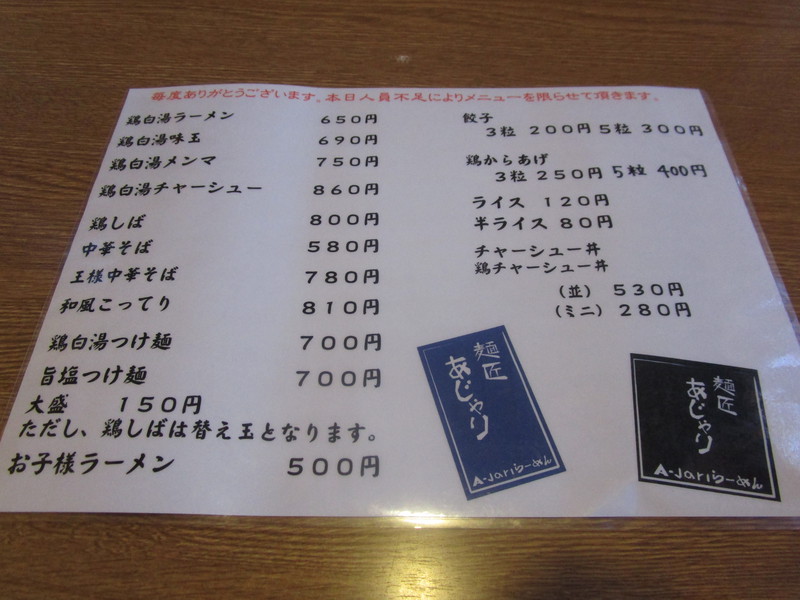 毎度ありがとうございます。本日人員不足によりメニューを限らせて頂きます。
鶏白湯ラーメン 650円
鶏白湯味玉 690円
鶏白湯メンマ 750円
鶏白湯チャーシュー 860円
鶏しば 800円
中華そば 580円
王様中華そば 780円
和風こってり 810円
鶏白湯つけ麺 700円
旨塩つけ麺 700円
大盛 150円
ただし、鶏しばは替え玉となります。
お子様ラーメン 500円
餃子
3粒 200円 5粒 300円
鶏からあげ
3粒 250円 5粒 400円
ライス 120円
半ライス 80円
チャーシュー丼
鶏チャーシュー丼
（並） 530円
（ミニ） 280円
麺匠
あじゃり
A-Jariらーめん
麺匠
あじゃり
A-Jariらーめん